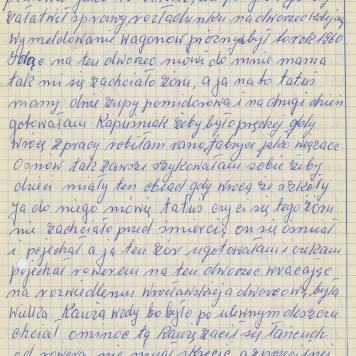 załatwić sprawy rozładunku na dworzec kolejowy
wymeldowanie wagonów próżnych był to rok 1960
Idąc na ten dworzec mówi do mnie mama
tak mi się zachciało żuru, a ja na to tatuś
mamy dwie zupy pomidorowa i na drugi dzień
gotowałam Kapuśniak żeby było prędzej gdy
wrócę z pracy robiłam rano fabryce jako wiążąca
Osnów tak zawsze szykowałam sobie żeby
dzieci miały ten obiad gdy wrócą ze szkoły
Ja do niego mówię tatuś czy ci się tego żuru
nie zachciało przed śmiercią on się uśmiał
i pojechał a ja ten żur ugotowałam i czekam
pojechał rowerem na ten dworzec wracając
na rozwidleniu wrocławskiej a dworcowej była
wielka Kałuża wody bo było po ulewnym deszczu
chciał ominąć tą Kałużę zaciął się łańcuch
od roweru nie mógł skręcić a z przeciwnej